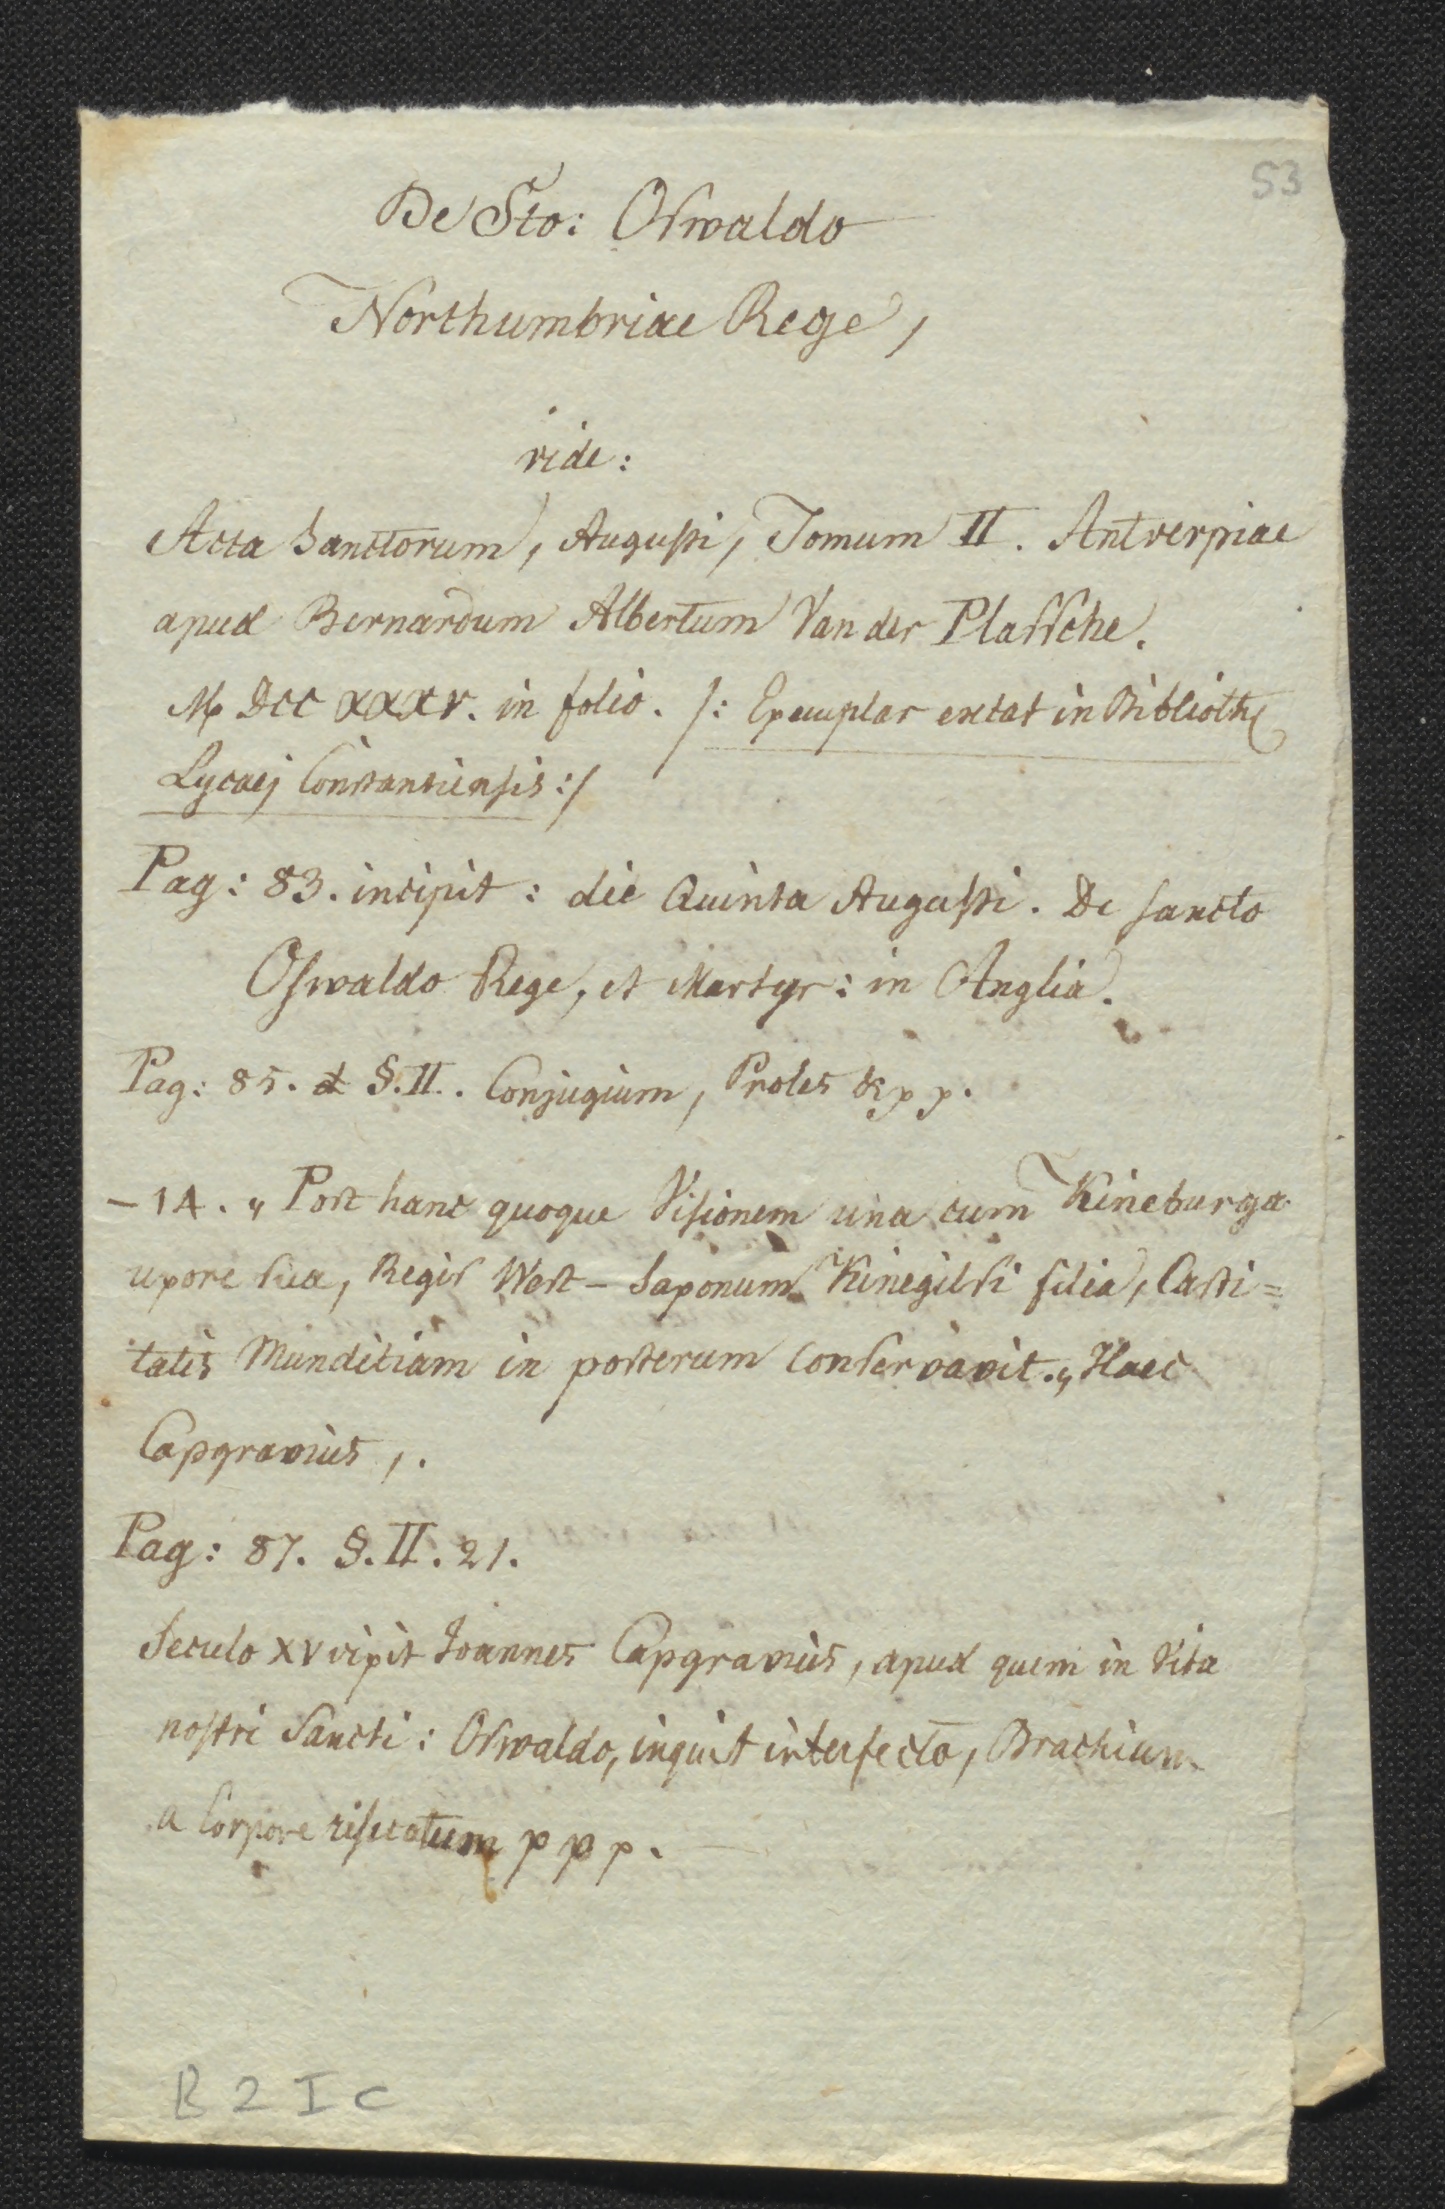 53
De Sto: Oswaldo
Northumbriae Rege,
vide:
Acta Sanctorum, Augusti, Tomum II. Antverpiae
apud Bernardum Albertum Van der Plassche.
M DCC XXXV. in folio. /: Exemplar extat in Biblioth:
Lycaej Constantiensis :/
Pag: 83. incipit: die Quinta Augusti. De sancto
Oswaldo Rege, et Martyr: in Anglia.
Pag: 85. et §. II. Conjugium, Proles &pp.
– 14. „ Post hanc quoque Visionem una cum Kineburga
uxore sua, Regis West-Saxonum Kinegilsi filia, Casti=
tatis Munditiam in posterum conservavit.„ Haec
Capgravius,.
Pag: 87. §. II. 21.
Seculo XV vixit Joannes Capgravius, apud quem in Vita
nostri Sancti: Oswaldo, inquit interfecto, Brachium
a Corpore resecatum p p p.
B 2 I C